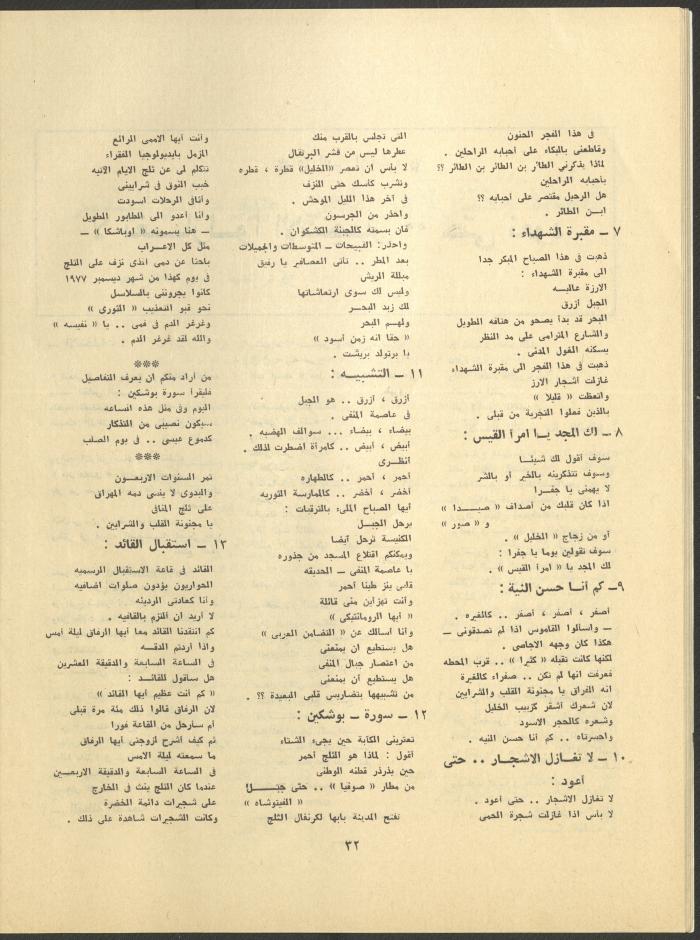 في هذا الفجر الحنون
وقاطعني بالبكاء على أحبابه الراحلين .
لماذا يذكرني الطائر بن الطائر بن الطائر ؟؟
بأحبابه الراحلين
هل الرحيل مقتصر على أحبابه ؟؟
ابــن الطائر .
٧ ـ مقبرة الشهداء :
ذهبت في هذا الصباح المبكر جدا
الى مقبرة الشهداء :
الارزة عاليــه
الجبل أزرق
البحر قد بدأ يصحو من هتافه الطويل
والشارع المترامي على مد النظر
يسكنه الغول المدني .
ذهبت في هذا الفجر الى مقبرة الشهداء
غازلت أشجار الارز
واتعظت « قليلا »
بالذين فعلوا التجربة من قبلي .
٨ ـ لك المجد يــا امرأ القيس :
سوف أقول لك شيئــا
وسوف تتذكرينه بالخير أو بالشر
لا يهمني يا جفــرا
اذا كان قلبك من أصداف « صيــــدا »
و « صور »
أو من زجاج « الخليل » .
سوف تقولين يوما يا جفرا :
لك المجد يا « امرأ القيس » .
٩ـ كم أنــا حسن النية :
أصفر ، أصفر ، أصفر .. كالغيره .
ـ واسألوا القاموس اذا لم تصدقوني ـ
هكذا كان وجهه الاجاصي .
لكنها كانت تقبله « كثيرا » .. قرب المحطه
فعرفت انها لم تكن .. صفراء كالغيرة
انه الفراق يا مجنونة القلب والشرايين
لان شعرك أشقر كزبيب الخليل
وشعره كالحجر الاسود
واحسرتاه .. كم أنا حسن النيه .
١٠ ـ لا تغــازل الاشجــار .. حتى
أعود :
لا تغازل الاشجار .. حتى أعود .
لا بأس اذا غازلت شجرة الحمى
التي تجلس بالقرب منك
عطرها ليس من قشر البرتقال
لا بأس ان تعصر «الخليل» قطرة ، قطره
وتشرب كأسك حتى النزف
في آخر هذا الليل الموحش .
واحذر من الجرسون
فان بسمته كالجبنة الكشكوان .
واحذر: القبيحات ـ المتوسطات والجميلات
بعد المطر .. تأتي العصافير يا رفيق
مبللة الريش
وليس لك سوى ارتعاشاتها
لك زبد البحــر
ولهــم البحر
« حقا انه زمن أسود »
يا برتولد بريشت .
١١ ـ التشبيــه :
أزرق ، أزرق .. هو الجبل
في عاصمة المنفى .
بيضاء ، بيضاء ... سوالف الهضبه .
أبيض ، أبيض .. كامرأة اضطرت لذلك .
انظــري
أحمر ، أحمر .. كالطهاره
أخضر ، أخضر .. كالممارسة الثوريه
أيها الصباح المليء بالترقبات :
يرحل الجبــل
الكنيسة ترحل أيضا
ويمكنكم اقتلاع المسجد من جذوره
يا عاصمة المنفى ـ الحديقه
قلبي ينز طينا أحمر
وأنت تهزأين مني قائلة
« أيها الرومانتيكي »
وأنا أسألك عن « التضامن العربي »
هل يستطيع أن يمنعني
من اعتصار جبال المنفى
هل يستطيع أن يمنعني
من تشبيهها بتضاريس قلبي البعيدة ؟؟ .
١٢ ـ سورة ـ بوشكين :
تعتريني الكآبة حين يجيء الشتاء
أقول : لماذا هو الثلج أحمر
حين يذرذر قطنه الوطني
من مطار « صوفيا » .. حتى جبــــل
« الفيتوشاه »
تفتح المدينة بابها لكرنفال الثلج
وأنت أيها الاممي الرائع
المزمل بايديولوجيا الفقراء
تتكلم لي عن ثلج الايام الآتيه
خبب النوق في شراييني
وأثافي الرحلات اسودت
وأنا أعدو الى الطابور الطويل
ـ هنا يسمونه « اوباشكا » ـ
مثل كل الاعــراب
باحثا عن دمي الذي نزف على الثلج
في يوم كهذا من شهر ديسمبر ١٩٧٧
كانوا يجرونني بالسلاسل
نحو قبو التعذيب « الثوري »
وغرغر الدم في فمي .. يا « نفيسه »
والله لقد غرغر الدم .
***
من أراد منكم ان يعرف التفاصيل
فليقرأ سورة بوشكين :
اليوم وفي مثل هذه الساعه
سيكون نصيبي من التذكار
كدموع عيسى .. في يوم الصلب
***
تمر السنوات الاربعــون
والبدوي لا ينسى دمه المهراق
على ثلج المنافي
يا مجنونة القلب والشرايين .
١٣ ـ استقبال القائد :
القائد في قاعة الاستقبال الرسميه
الحواريون يؤدون صلوات اضافيه
وأنا كعادتي الرديئه
لا أريد أن ألتزم بالقافيه .
كم انتقدنا القائد معا أيها الرفاق ليلة أمس
واذا أردتم الدقــه
في الساعة السابعة والدقيقة العشرين
هل سأقول للقائــد :
« كم أنت عظيم أيها القائد »
لان الرفاق قالوا ذلك مئة مرة قبلي
أم سأرحل من القاعة فورا
ثم كيف أشرح لزوجتي أيها الرفاق
ما سمعته ليلة الامس
في الساعة السابعة والدقيقة الاربعــين
عندما كان الثلج ينث في الخارج
على شجيرات دائمة الخضرة
وكانت الشجيرات شاهدة على ذلك .
٣٢